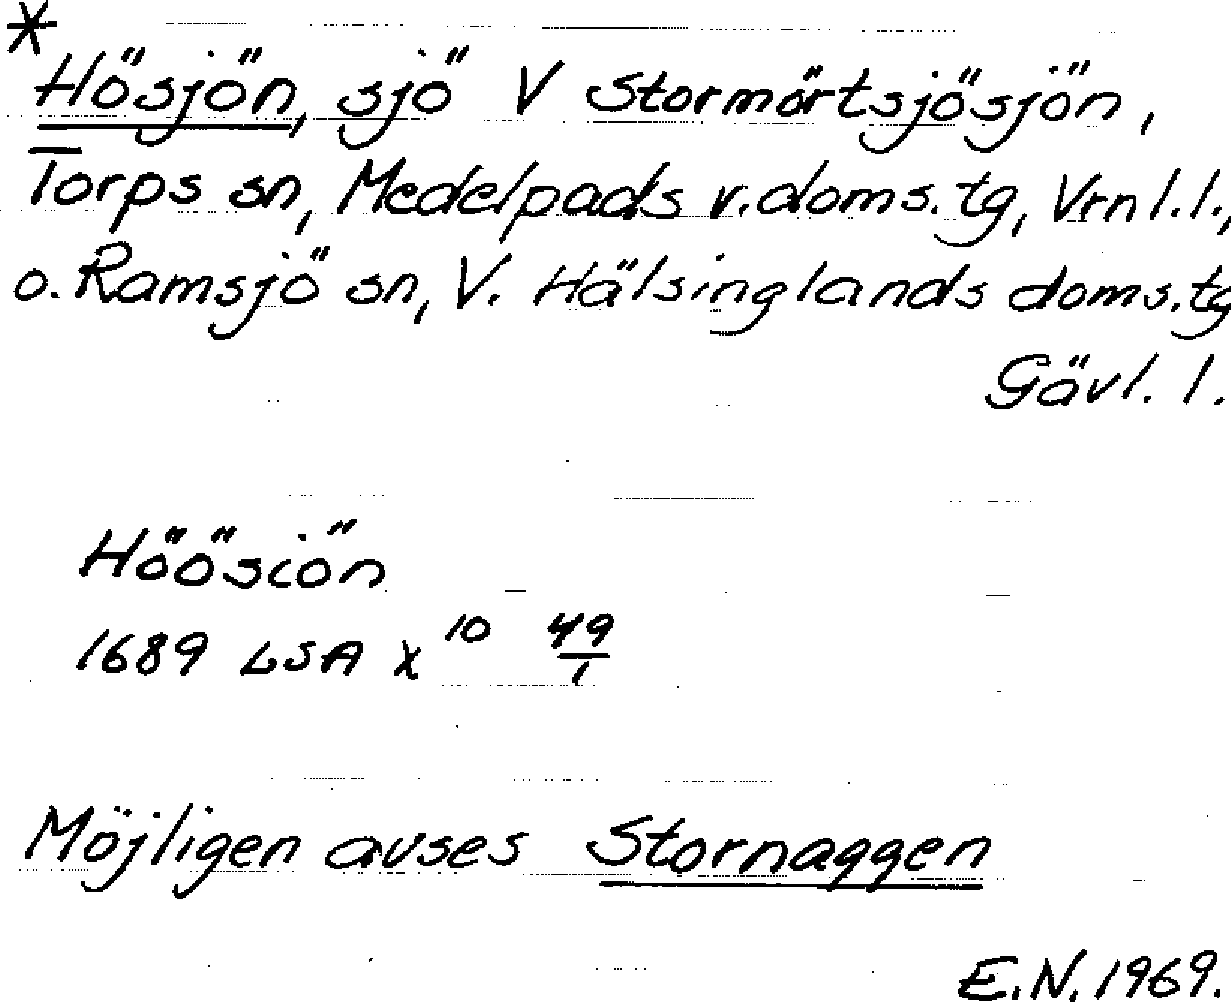 * Hösjön, sjö V Stormörtsjösjön,
Torps sn, Medelpads v. doms. tg, Vrnl. l.,
o. Ramsjö sn, V. Hälsinglands doms. tg
Gävl. l.
Höösiön
1689 LSA X 10 49/1
Möjligen avses Stornaggen
E.N. 1969.